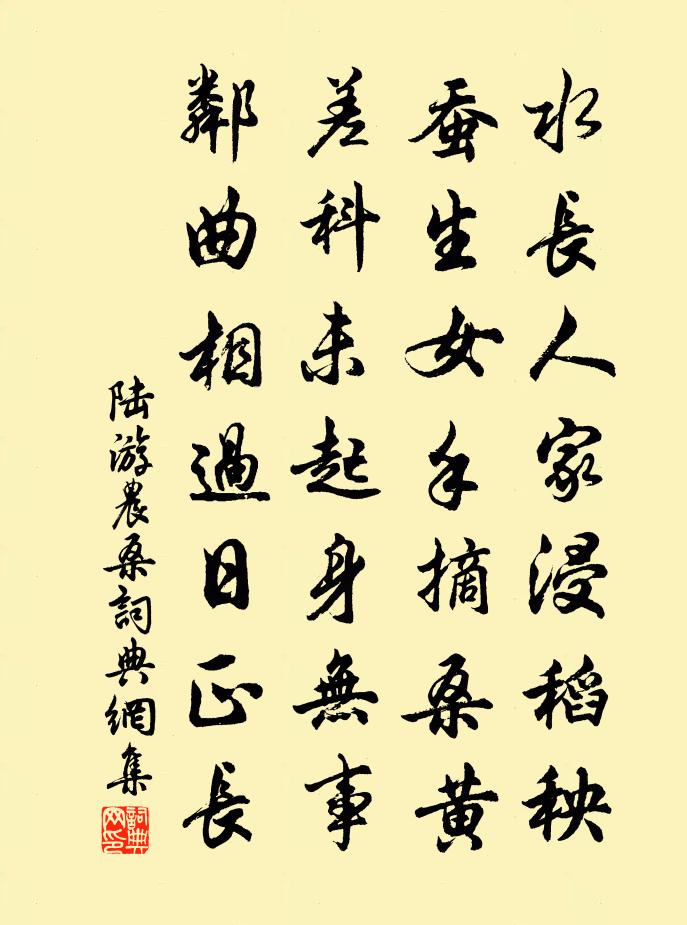 水長人家浸稻秧
蚕生女手摘桑黄
差科未起身無事
鄰曲相過日正長
陆游農桑詞典網集
詞典網印